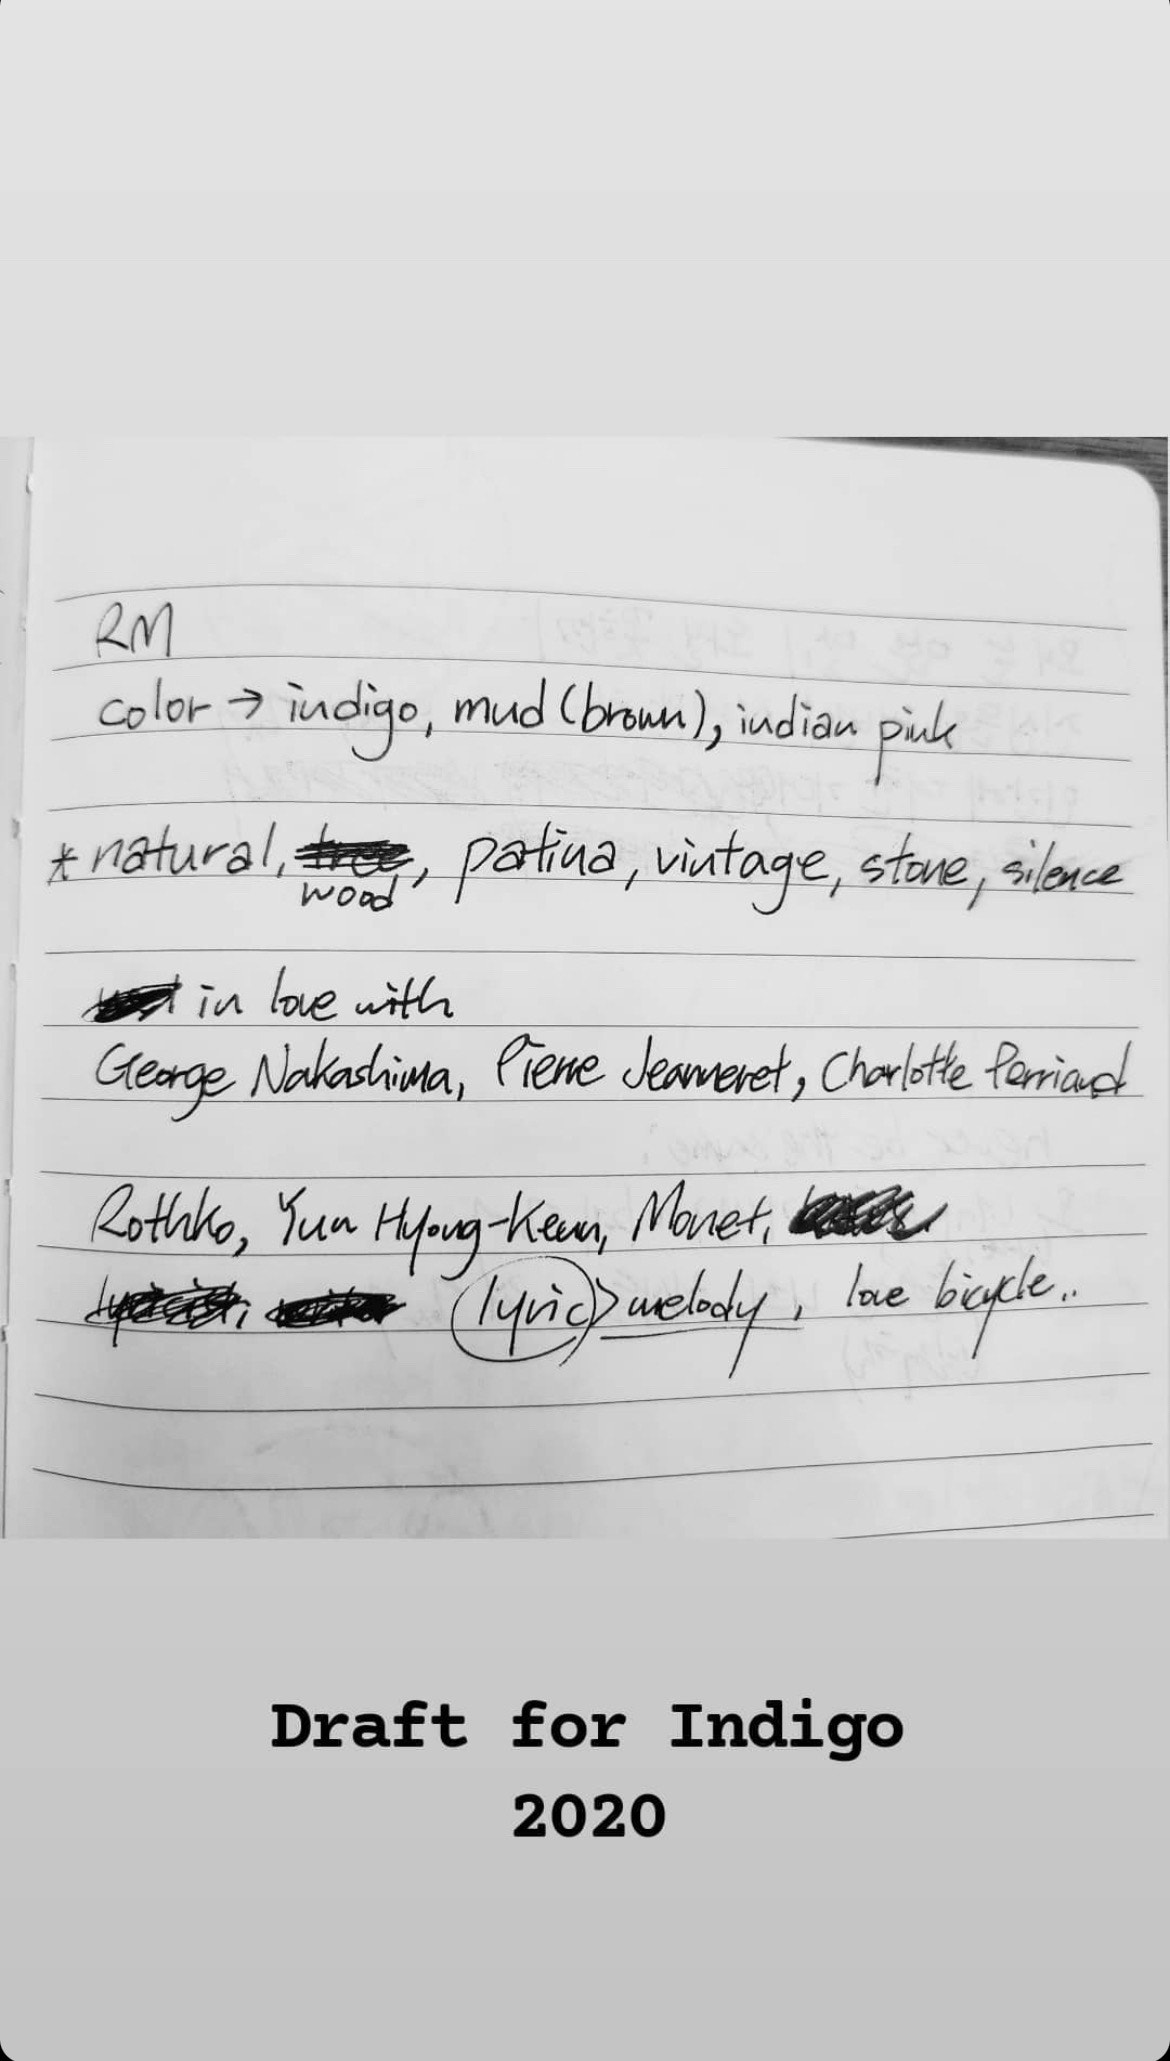 RM
color → indigo, mud (brown), indian pink
* natural, tree, patina, vintage, stone, silence
wood
in love with
George Nakashima, Pierre Jeanneret, Charlotte Perriand
Rothko, Yun Hyong-Keun, Monet,
lyric > melody, love bicycle..
Draft for Indigo
2020